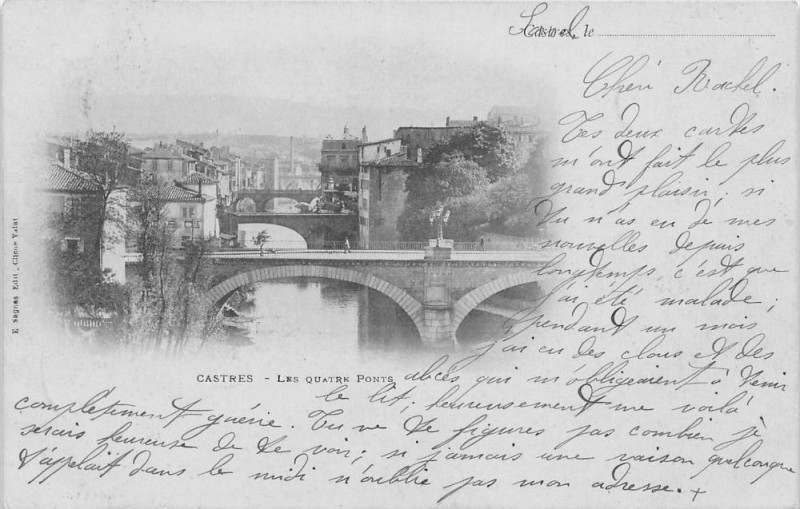 Castres, le
Chéri Rachel.
Tes deux cartes
m'ont fait le plus
grand plaisir; si
tu n'as eu de mes
nouvelles depuis
longtemps, c'est que
j'ai été malade;
pendant un mois
j'ai eu des clous et des
CASTRES - LES QUATRE PONTS
abcès qui m'obligeaient à tenir
le lit; heureusement me voilà
complètement guérie. Tu ne te figures pas combien je
serais heureuse de te voir; si jamais une raison quelconque
t'appelait dans le midi n'oublie pas mon adresse. +
E. Sagnes Edit.